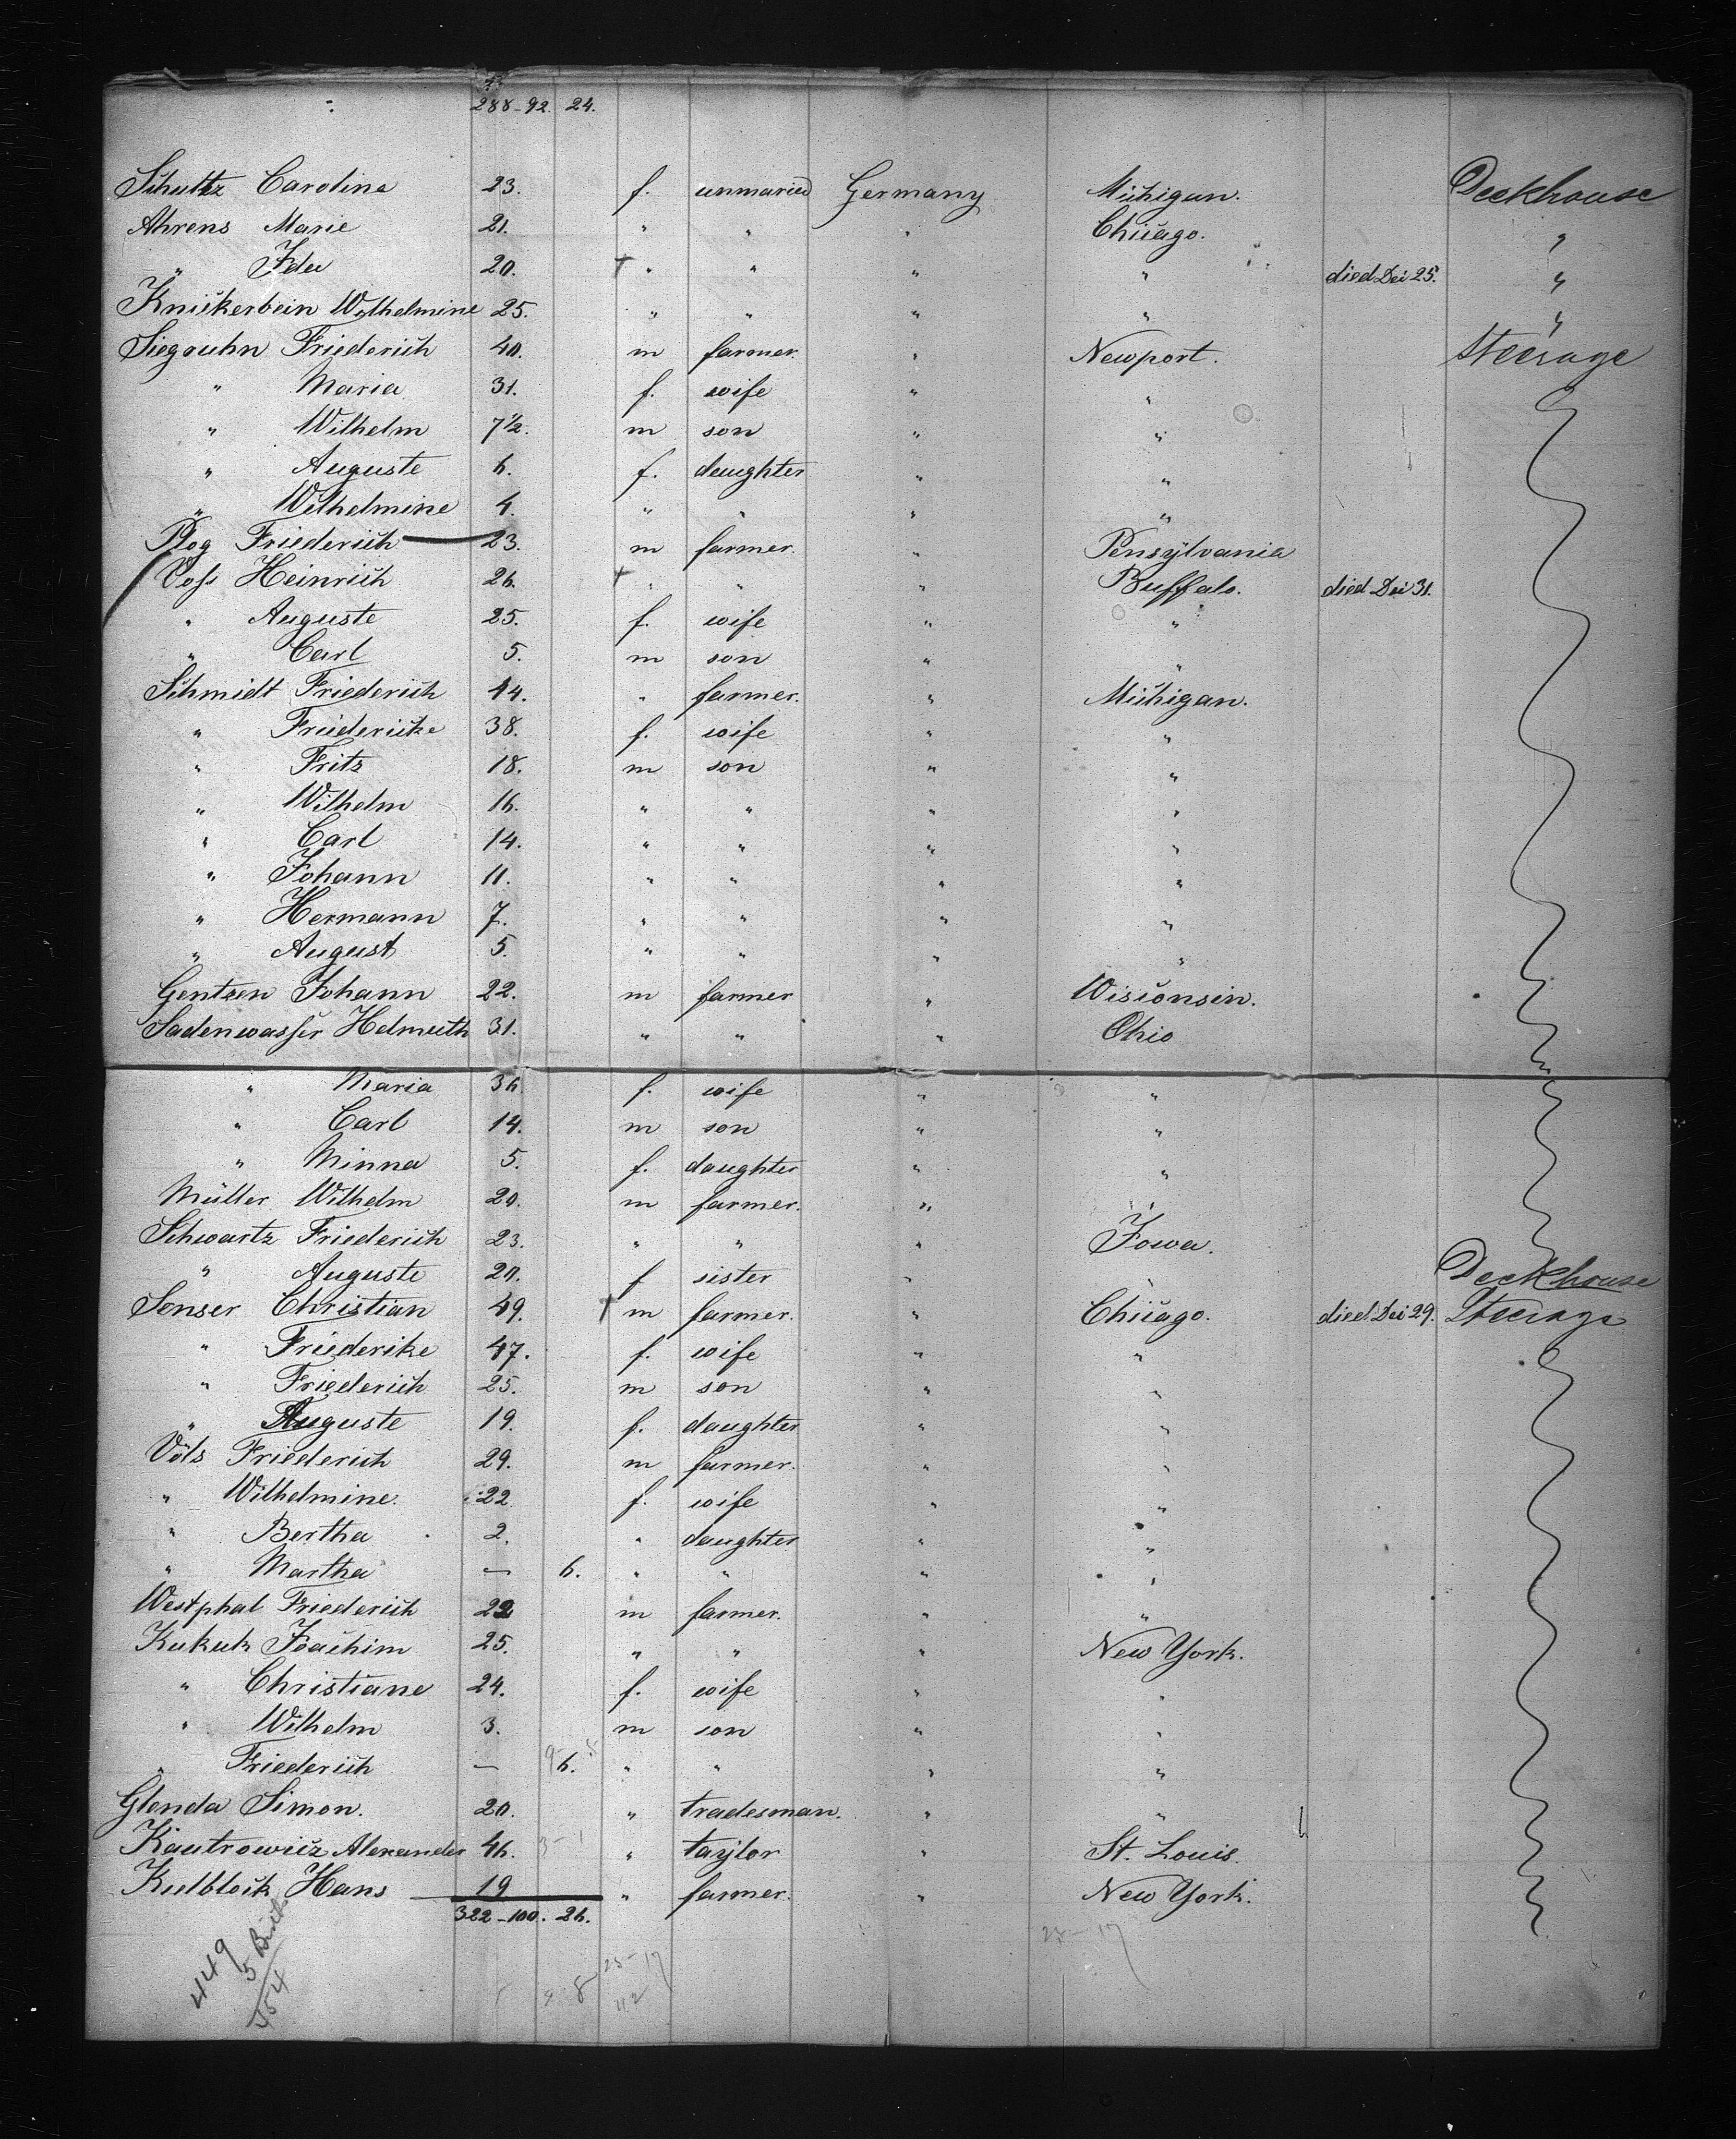 288-92. 24.
Schultz Caroline 23. f. unmaried Germany Michigan. Deckhouse
Ahrens Marie 21. " " " Chicago. "
" Ida 20. † " " " " died Dec 25. "
Knickerbein Wilhelmine 25. " " " " "
Siegruhn Friederich 40. m farmer. " Newport. Steerage
" Maria 31. f. wife " "
" Wilhelm 7½. m son " "
" Auguste 6. f. daughter " "
" Wilhelmine 4. " " " "
Plog Friederich 23. m farmer. " Pensylvania
Voss Heinrich 26. † " " " Buffalo. died Dec 31.
" Auguste 25. f. wife " "
" Carl 5. m son " "
Schmidt Friederich 44. " farmer. " Michigan.
" Friedericke 38. f. wife " "
" Fritz 18. m son " "
" Wilhelm 16. " " " "
" Carl 14. " " " "
" Johann 11. " " " "
" Hermann 7. " " " "
" August 5. " " " "
Gentzen Johann 22. m farmer " Wisconsin.
Sadenwasser Helmuth 31. " " " Ohio
" Maria 36. f. wife " "
" Carl 14. m son " "
" Minna 5. f. daughter " "
Müller Wilhelm 20. m farmer. " "
Schwartz Friederich 23. " " " Iowa.
" Auguste 20. f sister " " Deckhouse
Sonser Christian 49. † m farmer. " Chicago. died Dec 29. Steerage
" Friederike 47. f. wife " "
" Friederich 25. m son " "
" Auguste 19. f. daughter " "
Völs Friederich 29. m farmer. " "
" Wilhelmine. 22. f. wife " "
" Bertha 2. " daughter " "
" Martha — 6. " " " "
Westphal Friederich 22 m farmer. " "
Kukuk Joachim 25. " " " New York.
" Christiane 24. f. wife " "
" Wilhelm 3. m son " "
" Friederich — 6. " " " "
Glenda Simon. 20. " tradesman. " "
Kautrowicz Alexander 46. " taylor " St. Louis.
Kielblock Hans 19 " farmer. " New York.
322-100. 26.
449
5
454